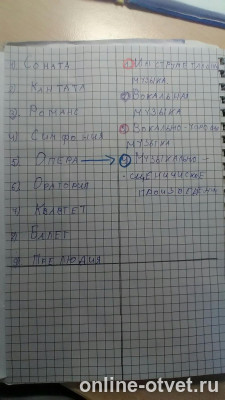 1) Соната
2) Кантата
3) Романс
4) Симфония
5) Опера
6) Оратория
7) Квартет
8) Балет
9) Прелюдия
музыка
Вокальная
музыка
Вокально-
музыка
Музыкально-
-сценическое
online-otvet.ru